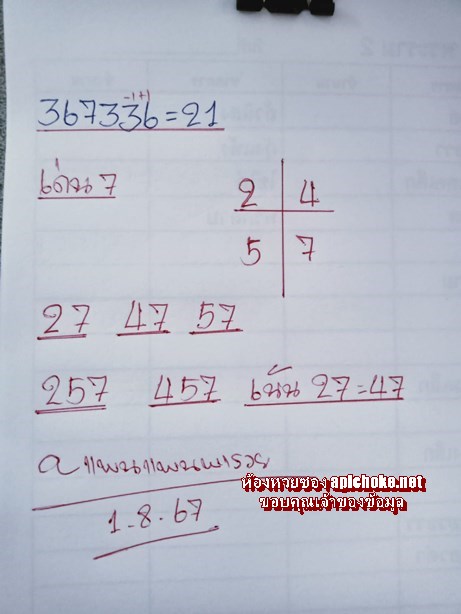 -1+1
367336=21
เด่น 7
2 4
5 7
27 47 57
257 457 เน้น 27=47
a แพนแพนพารวย
ห้องหวยซอง apichoke.net
ขอบคุณเจ้าของข้อมูล
1-8-67